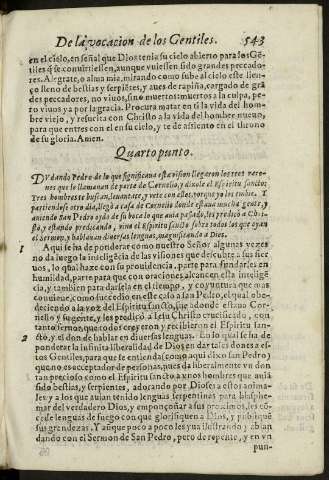 De la vocacion de los Gentiles. 543
en el cielo, en señal que Dios tenia su cielo abierto para los Gẽ
tiles q̃ se conuirtiessen, aunque vuiessen sido grandes peccado-
res. Alegrate, o alma mia, mirando como sube al cielo este lien-
ço lleno de bestias y serpiẽtes, y aues de rapiña, cargado de grã
des peccadores, no viuos, sino muertos: muertos a la culpa, pe-
ro viuos ya por la gracia. Procura matar en ti la vida del hom-
bre viejo, y resuscita con Christo a la vida del hombre nueuo,
para que entres con el en su cielo, y te de assiento en el throno
de su gloria. Amen.
Quarto punto.
Dudando Pedro de lo que significaua esta vision llegaron los tres varo-
nes que le llamauan de parte de Cornelio, y dixole el Espiritu sancto:
Tres hombres te buscan, leuantate, y vete con ellos, porque yo los embio. Y
partiendose otro dia, llegò a casa de Cornelio donde estaua mucha gente, y
auiendo San Pedro oydo de su boca lo que auia passado, les predicò a Chri-
sto, y estando predicando, vino el Espiritu sancto sobre todos los que oyan
el sermon, y hablauan diuersas lenguas, magnificando a Dios.
1 Aqui se ha de ponderar como nuestro Señor algunas vezes
no da luego la inteligẽcia de las visiones que descubre a sus sier
uos, lo qual haze con su prouidencia, parte para fundarles en
humildad, parte para que con oraciones alcancen esta inteligẽ
cia, y tambien para darsela en el tiempo, y coyuntura que mas
conuiene, como succedio en este caso a san Pedro, el qual obe-
deciendo a la voz del Espiritu sancto, fue adonde estaua Cor-
nelio y su gente, y les predicò a Iesu Christo crucificado, con
tanto feruor, que todos creyeron y recibieron el Espiritu san-
2 cto, y el don de hablar en diuersas lenguas. En lo qual se ha de
ponderar la infinita liberalidad de Dios en dar tales dones a es-
tos Gentiles, para que se entienda (como aqui dixo san Pedro)
que no es acceptador de personas, pues da liberalmente vn don
tan precioso como el Espiritu sancto a vnos hombres que auiã
sido bestias, y serpientes, adorando por Dioses a estos anima-
les y a los que auian tenido lenguas serpentinas para blasphe-
mar del verdadero Dios, y emponçoñar a sus proximos, les cõ-
cede lenguas de fuego con que glorifiquen a Dios, y publiquẽ
sus grandezas. Y aũque poco a poco les yua ilustrando y ablan
dando con el Sermon de San Pedro, pero de repente, y en vn
pun-